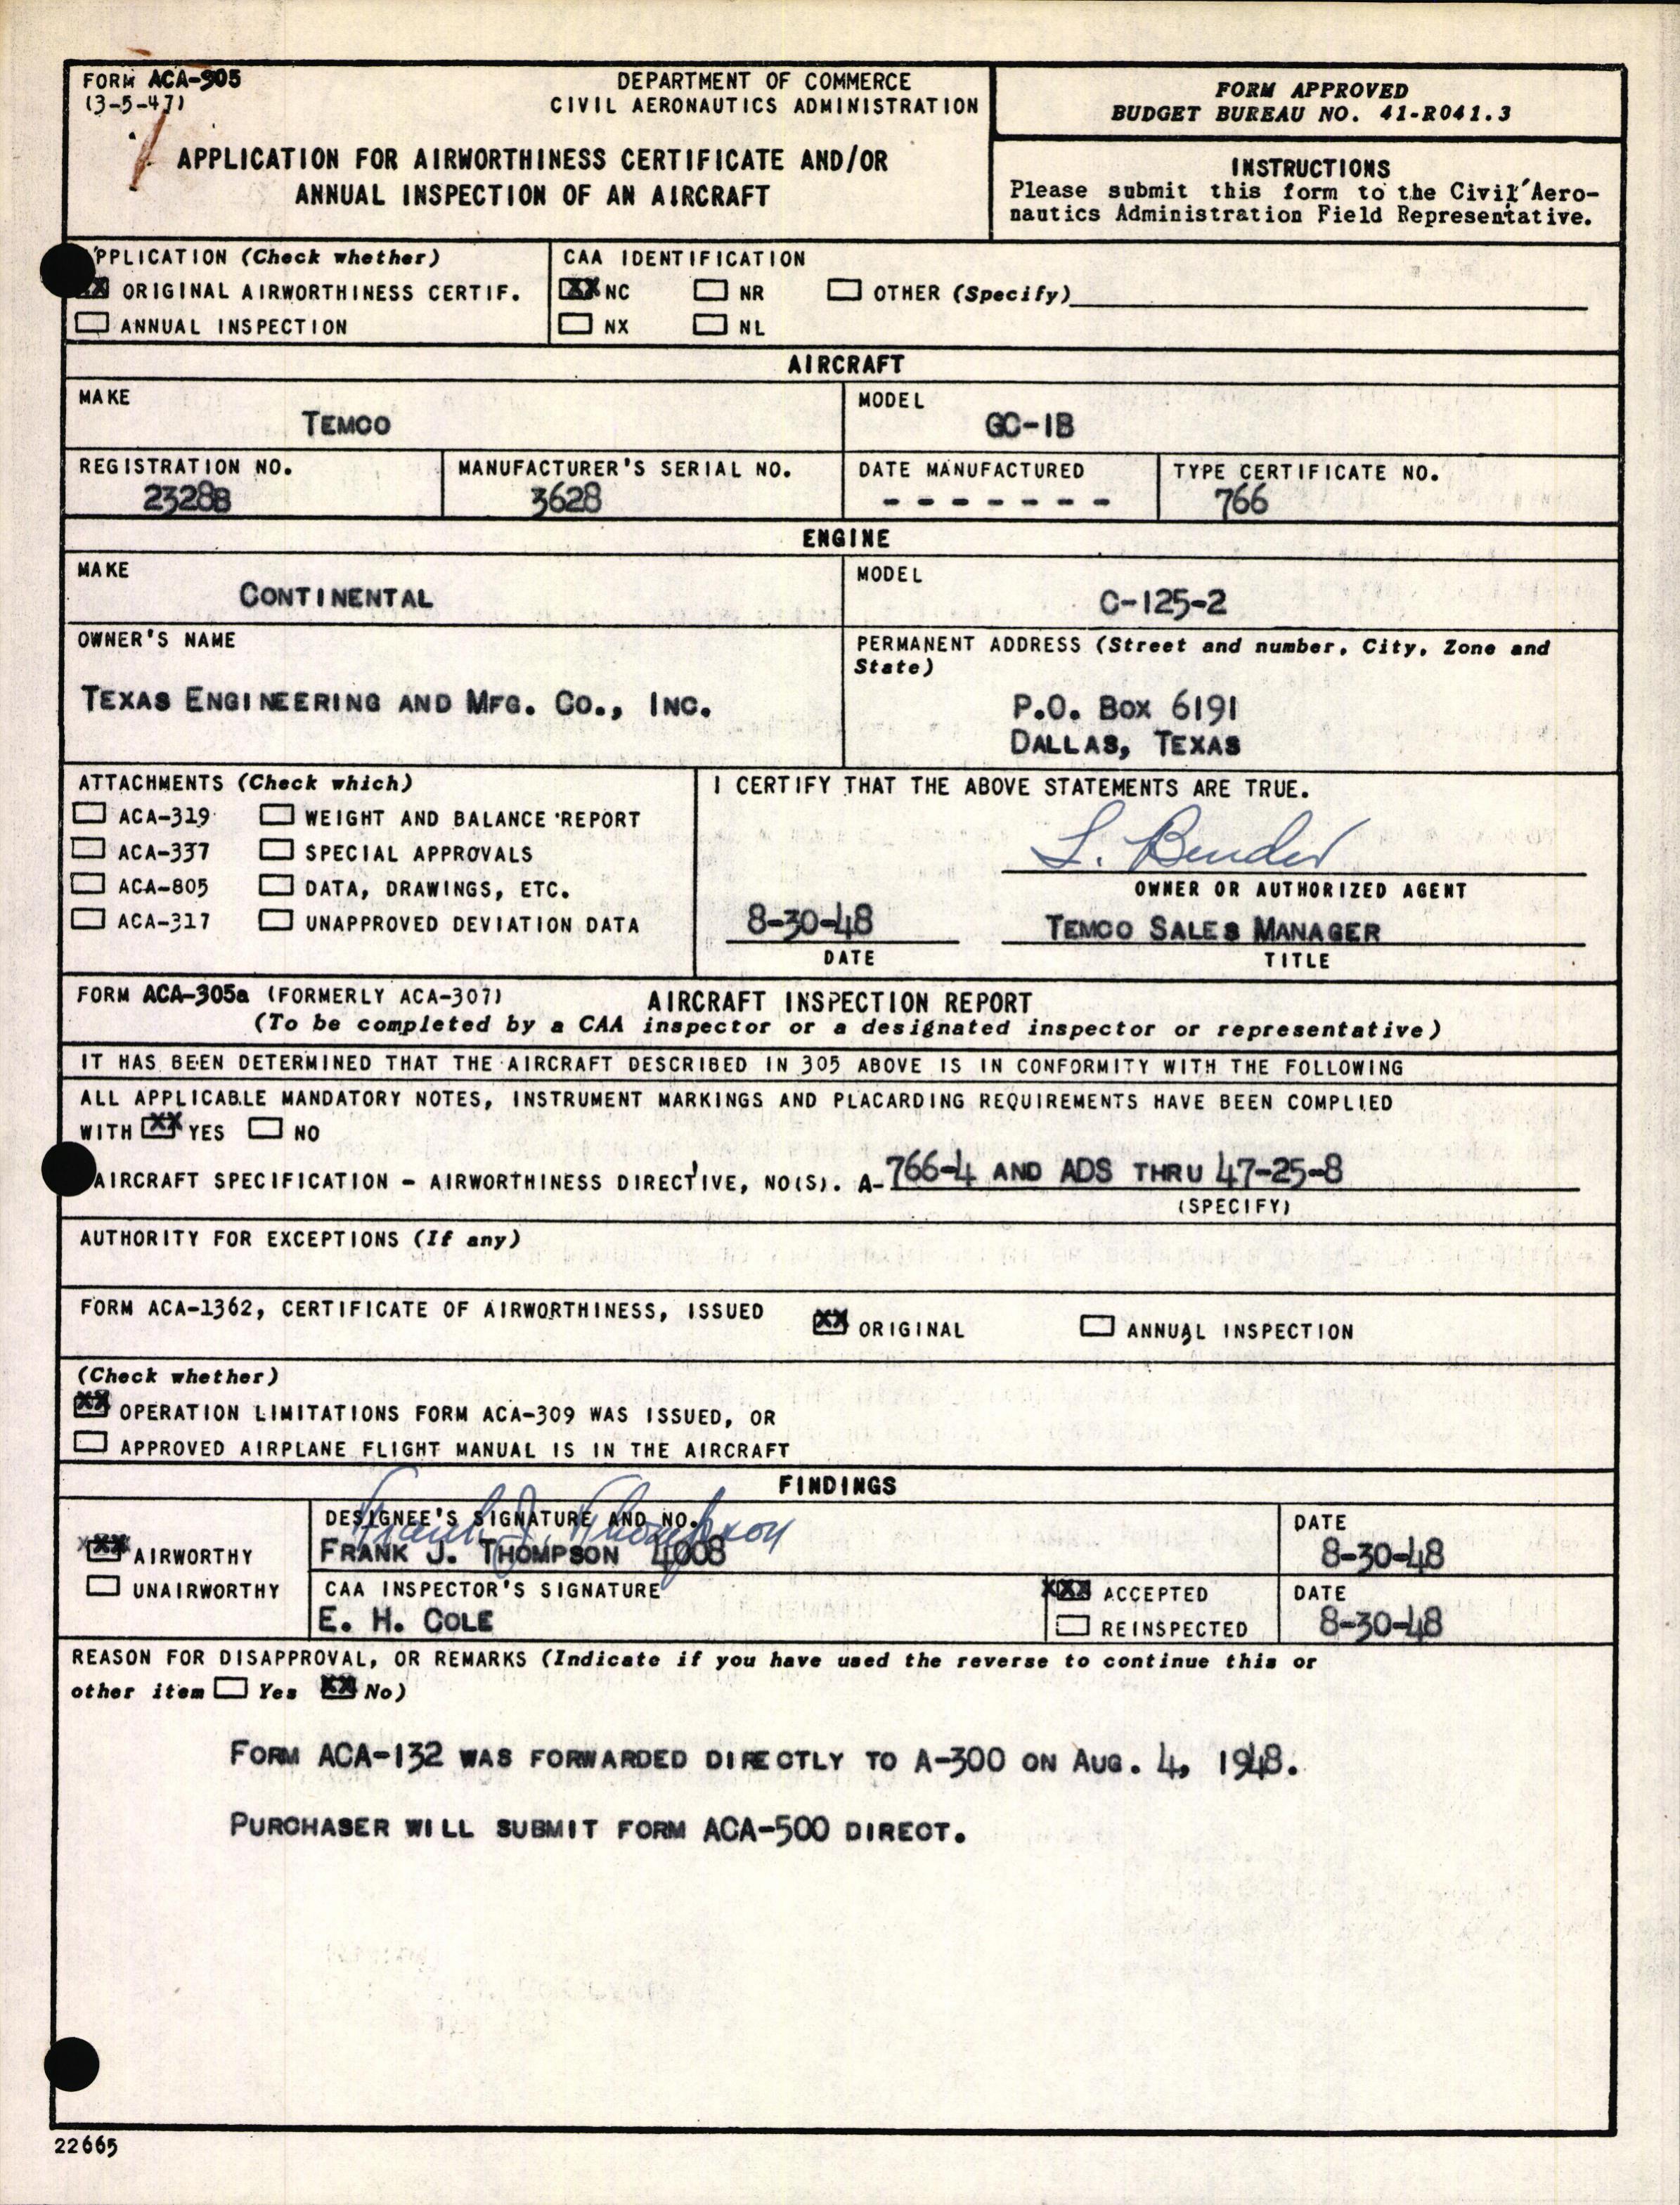 FORM ACA-305
(3-5-47)
DEPARTMENT OF COMMERCE
CIVIL AERONAUTICS ADMINISTRATION
APPLICATION FOR AIRWORTHINESS CERTIFICATE AND/OR
ANNUAL INSPECTION OF AN AIRCRAFT
FORM APPROVED
BUDGET BUREAU NO. 41-R041.3
INSTRUCTIONS
Please submit this form to the Civil Aero-
nautics Administration Field Representative.
PPLICATION (Check whether)
XX ORIGINAL AIRWORTHINESS CERTIF.
ANNUAL INSPECTION
CAA IDENTIFICATION
XX NC NR OTHER (Specify)
NX NL
AIRCRAFT
MAKE
TEMCO
MODEL
GC-1B
REGISTRATION NO.
2328B
MANUFACTURER'S SERIAL NO.
3628
DATE MANUFACTURED
- - - - - - -
TYPE CERTIFICATE NO.
766
ENGINE
MAKE
CONTINENTAL
MODEL
C-125-2
OWNER'S NAME
TEXAS ENGINEERING AND MFG. CO., INC.
PERMANENT ADDRESS (Street and number, City, Zone and
State)
P.O. BOX 6191
DALLAS, TEXAS
ATTACHMENTS (Check which)
ACA-319 WEIGHT AND BALANCE REPORT
ACA-337 SPECIAL APPROVALS
ACA-805 DATA, DRAWINGS, ETC.
ACA-317 UNAPPROVED DEVIATION DATA
I CERTIFY THAT THE ABOVE STATEMENTS ARE TRUE.
L. Bender
OWNER OR AUTHORIZED AGENT
8-30-48 TEMCO SALES MANAGER
DATE TITLE
FORM ACA-305a (FORMERLY ACA-307) AIRCRAFT INSPECTION REPORT
(To be completed by a CAA inspector or a designated inspector or representative)
IT HAS BEEN DETERMINED THAT THE AIRCRAFT DESCRIBED IN 305 ABOVE IS IN CONFORMITY WITH THE FOLLOWING
ALL APPLICABLE MANDATORY NOTES, INSTRUMENT MARKINGS AND PLACARDING REQUIREMENTS HAVE BEEN COMPLIED
WITH XX YES NO
AIRCRAFT SPECIFICATION - AIRWORTHINESS DIRECTIVE, NO(S). A-766-4 AND ADS THRU 47-25-8
(SPECIFY)
AUTHORITY FOR EXCEPTIONS (If any)
FORM ACA-1362, CERTIFICATE OF AIRWORTHINESS, ISSUED XX ORIGINAL ANNUAL INSPECTION
(Check whether)
XX OPERATION LIMITATIONS FORM ACA-309 WAS ISSUED, OR
APPROVED AIRPLANE FLIGHT MANUAL IS IN THE AIRCRAFT
FINDINGS
XXX AIRWORTHY
UNAIRWORTHY
DESIGNEE'S SIGNATURE AND NO.
Frank J. Thompson
FRANK J. THOMPSON 4008
DATE
8-30-48
CAA INSPECTOR'S SIGNATURE
E. H. COLE
XXX ACCEPTED
REINSPECTED
DATE
8-30-48
REASON FOR DISAPPROVAL, OR REMARKS (Indicate if you have used the reverse to continue this or
other item Yes XX No)
FORM ACA-132 WAS FORWARDED DIRECTLY TO A-300 ON AUG. 4, 1948.
PURCHASER WILL SUBMIT FORM ACA-500 DIRECT.
22665